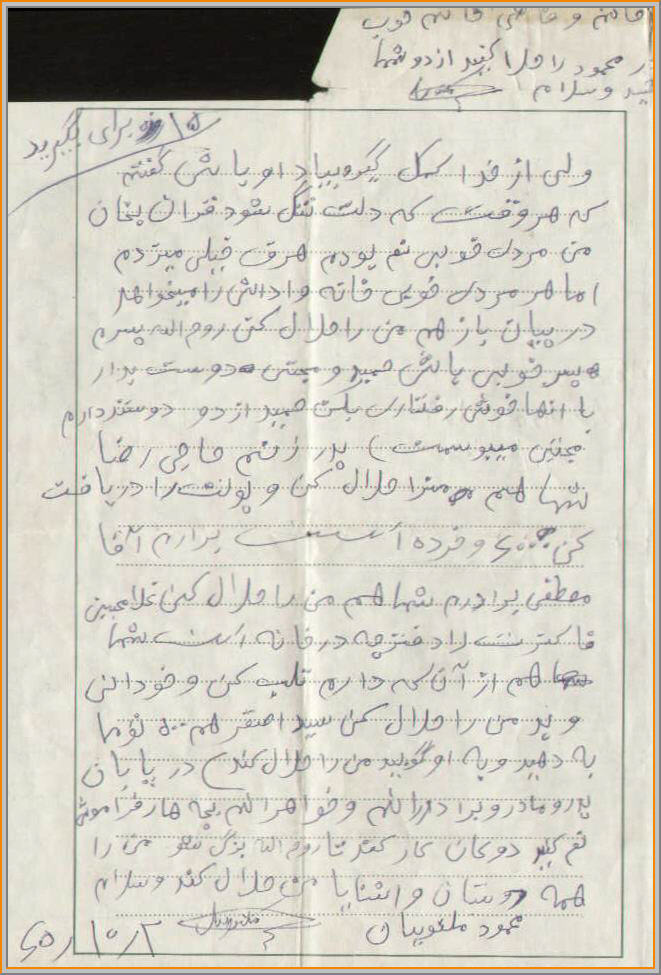 خانم و فاطمی خانم خوب
محمود را حلال کنید از دو شما
وسلام
۱۵ روزه برای بگیرید
ولی از خدا کمک گیر و بیاد او باش گفتم
که هر وقت که دلت تنگ شود قران بخان
من مردی خوبی نم بودم حرف خیلی میزدم
اما هر مردی خوبی خانه وادانش را میخواهد
در پیان باز هم من را حلال کن روم الله پسرم
پسر خوبی باش حمید و مجتبی دوست بدار
با انها خوش رفتاری باش حمید از دو دوستدارم
مجتبی میبوسمت) پدر زنم حاجی رضا
شما هم منرا حلال کن و پولت را دریافت
کن ۶۰۰۰ و خرده است برارم آقا
مصطفی برادرم شما هم من را حلال کن غلامحسین
فاکتریت را دفترچه در خانه است شما
هم از آن که دارم تلب کن و خودانی
و ید من را حلال کن سید اصقر هم ۵۰۰ تومها
به دهید و به او گویید من را حلال کند) در پایان
پدر و مادر و برادرالم و خواهرالم بچه ها فراموش
نم کنید دوعان کار کند تا روم الله بزرگ شود من را
همه دوستان و اشنایا من حلال کند وسلام
محمود ملعوبیان
۶۵/۱۰/۲